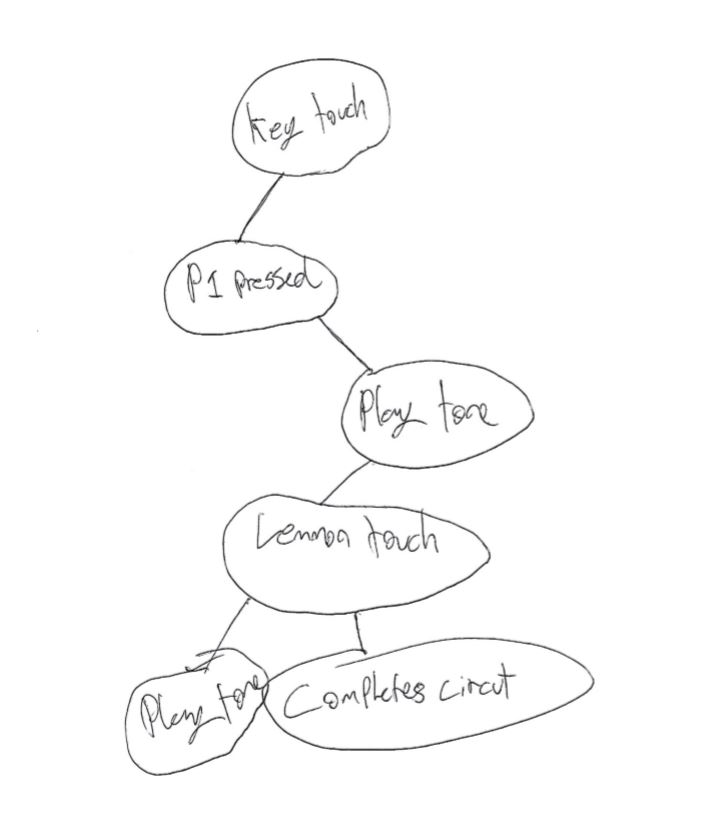 key touch
P1 pressed
Play tone
Lemmon touch
Play tone
Completes circut